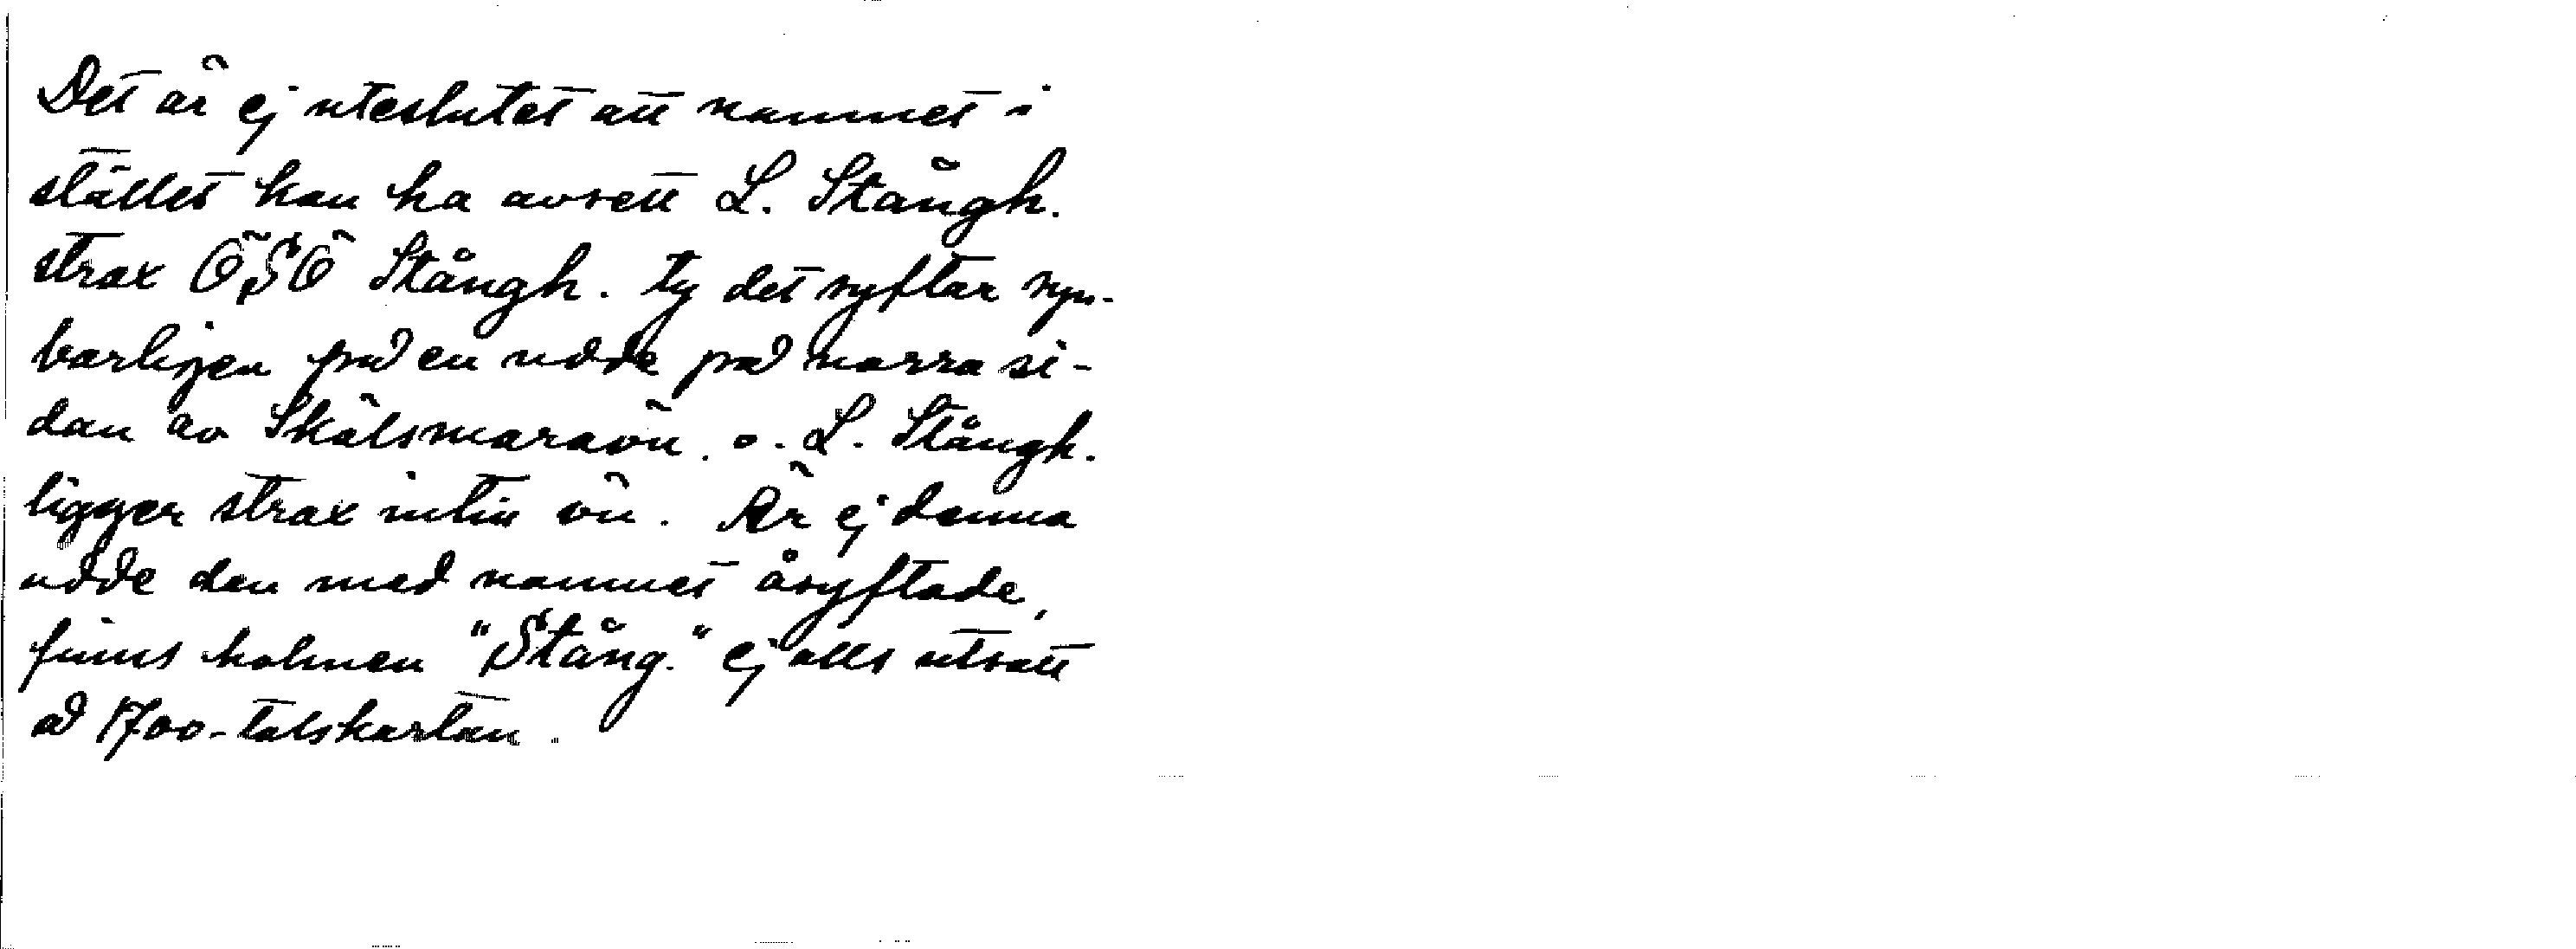 Det är ej uteslutet att namnet i
stället kan ha avsett L. Stångh.
strax ÖSÖ Stångh. ty det syftar syn-
barligen på en udde på norra si-
dan av Skälsmaraön. o. L. Stångh.
ligger strax intill ön. Är ej denna
udde den med namnet åsyftade,
finns holmen "Stång." ej alls utsatt
å 1700-talskartan.